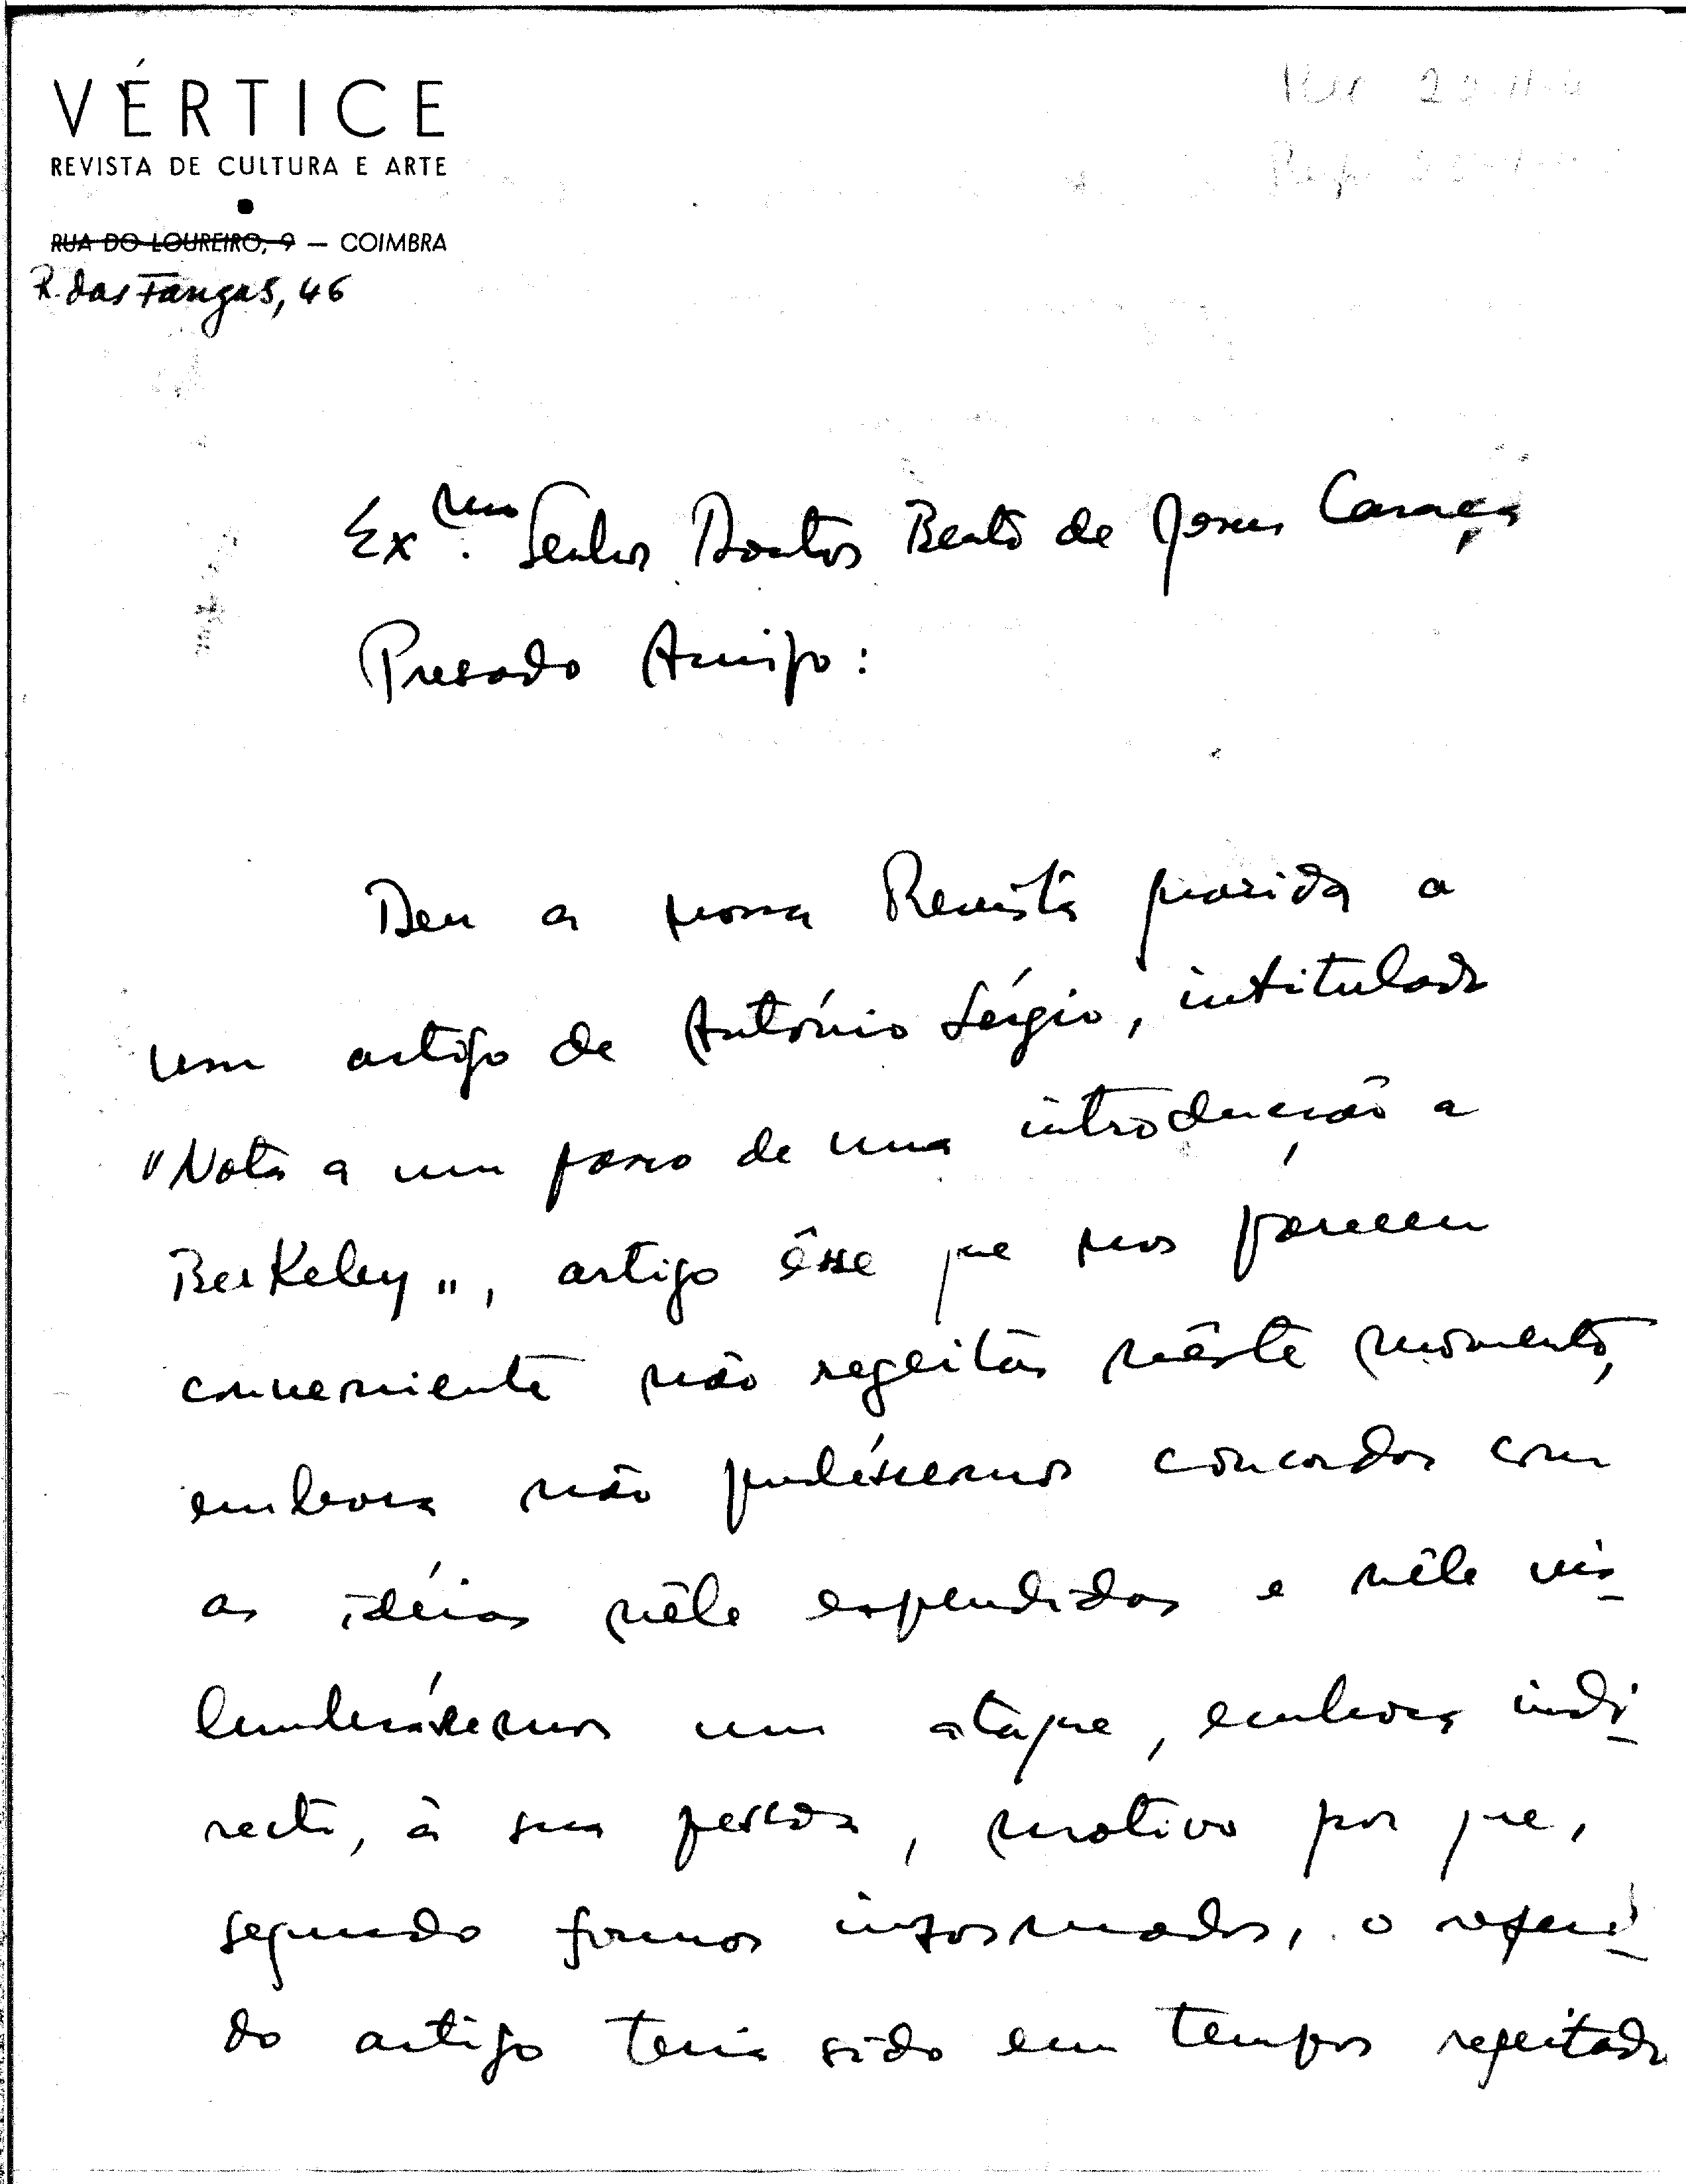 VÉRTICE
REVISTA DE CULTURA E ARTE
RUA DO LOUREIRO, 9 — COIMBRA
R. das Fangas, 46
Ex.mo Senhor Doutor Bento de Jesus Caraça
Presado Amigo:
Deu a nossa Revista guarida a
um artigo de António Sérgio, intitulado
"Nota a um passo de uma introdução a
Berkeley", artigo êsse que nos pareceu
conveniente não regeitar nêste momento,
embora não pudéssemos concordar com
as idéias nêle expendidas e nêle vis-
lumbrássemos um ataque, embora indi-
recto, à sua pessoa, motivo por que,
segundo fomos informados, o referi-
do artigo teria sido em tempos regeitado